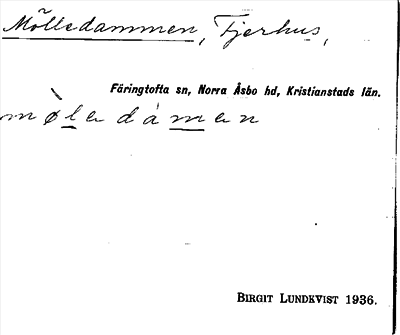 Möllsdammen, Tjerhus,
Färingtofta sn, Norra Åsbo hd, Kristianstads län.
møle dámen
BIRGIT LUNDKVIST 1936.